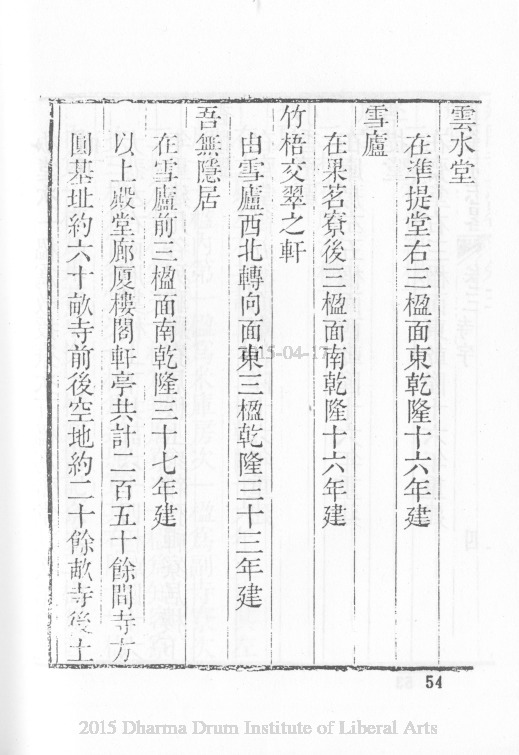 雲水堂
在準提堂右三楹面東乾隆十六年建
雪廬
在果茗寮後三楹面南乾隆十六年建
竹梧交翠之軒
由雪廬西北轉向面東三楹乾隆三十三年建
吾無隱居
在雪廬前三楹面南乾隆三十七年建
以上殿堂廊厦樓閣軒亭共計二百五十餘間寺方
圓基址約六十畝寺前後空地約二十餘畝寺後土
2015-04-17
54
2015 Dharma Drum Institute of Liberal Arts